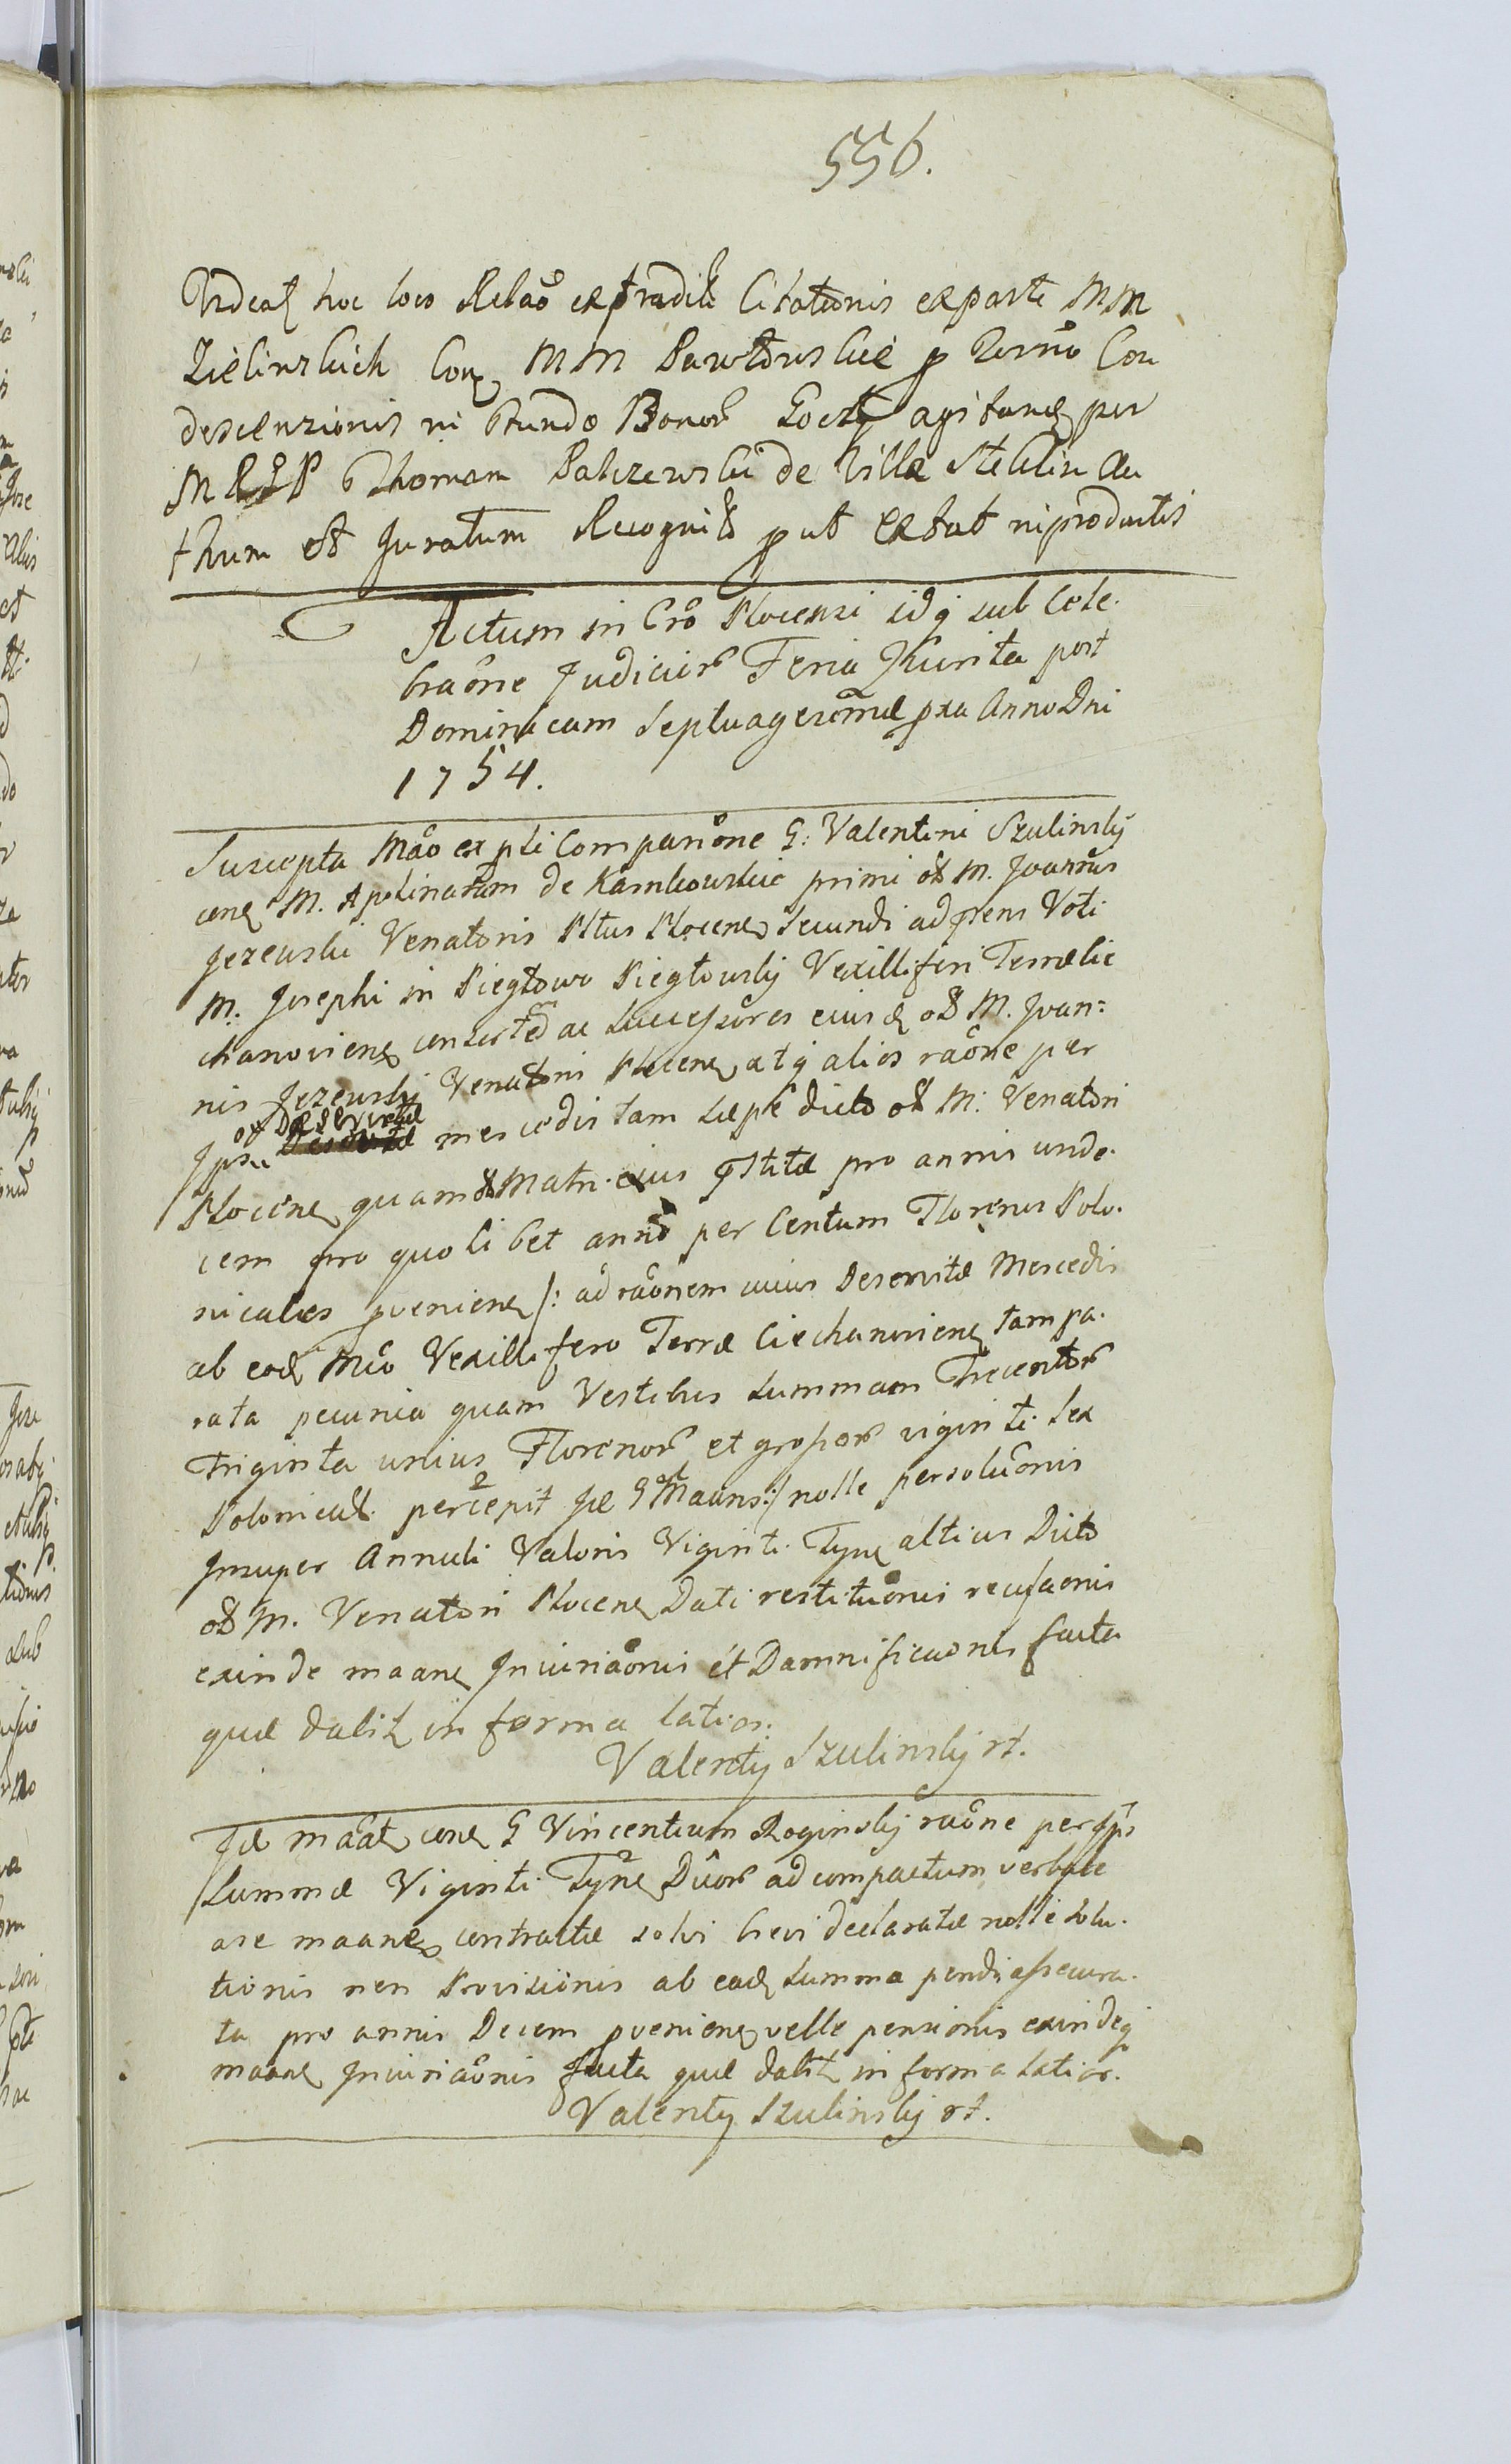 556.
Videat hoc loco Relao extradit Citationis ex parte MM
Zielinskich Con MM Pawłowskie p Termo Con
descensionis in fundo Bonor Łoczki agitand per
M R I P Thomam Balczewski de Villa Steklin Au
thum et Juratum Recognit put Extat in productis
Actum in Cro Plocensi idq sub Cele.
braone Judicior Feria Quinta post
Dominicam Septuagesimae pxa Anno Dni
1754.
Suscepta Mao ex pti Comparione G: Valentini Szulinskij
cone M. Apolinaram de Karnkowskie primi ol M. Joannis
Jezewski Venatoris Pltus Plocens secundi ad prens Voti
M: Josephi in Piegłowo Piegłowskij Vexilliferi Terrae Cie
chanoviens consortem ac Successores eiusd ol M. Joan=
nis Jezewskij Venatoris Plocens atq alios raone per
Ipsu et Deservitae mercedis tam saepe dicto ol M: Venatori
Plocens quam et Matri eius pstitae pro annis unde.
cem pro quolibet anno per Centum Florenos Polo.
nicales pveniens /: ad raonem cuius Deservitae Mercedis
ab eod Mco Vexillifero Terrae Ciechanoviens tam pa.
rata pecunia quam Vestibus Summam Trecentor
Triginta unius Florenor et grossor viginti sex
Polonical percepit Je G Maans :/ nolle persoluonis
Insuper Annuli Valoris Viginti Tyn altius Dicto
ol M. Venatori Plocens Dati restituonis recusaonis
exinde maans Iniuriaonis et Damnificaonis facta
quae dabit in forma latior.
Valenty Szulinskij rt.
Je maat cone G Vincentium Roginskij raone per Ips
Summae Viginti Tyn Duor ad compactum verbale
a se maans contractae solvi brevi declaratae nolle solu.
tionis nen Provisionis ab ead Summa pendi assecura.
ta pro annis Decem pveniens velle pensionis exindeq
maans Iniuriaonis facta quae dabit in forma latior.
Valenty Szulinskij rt.